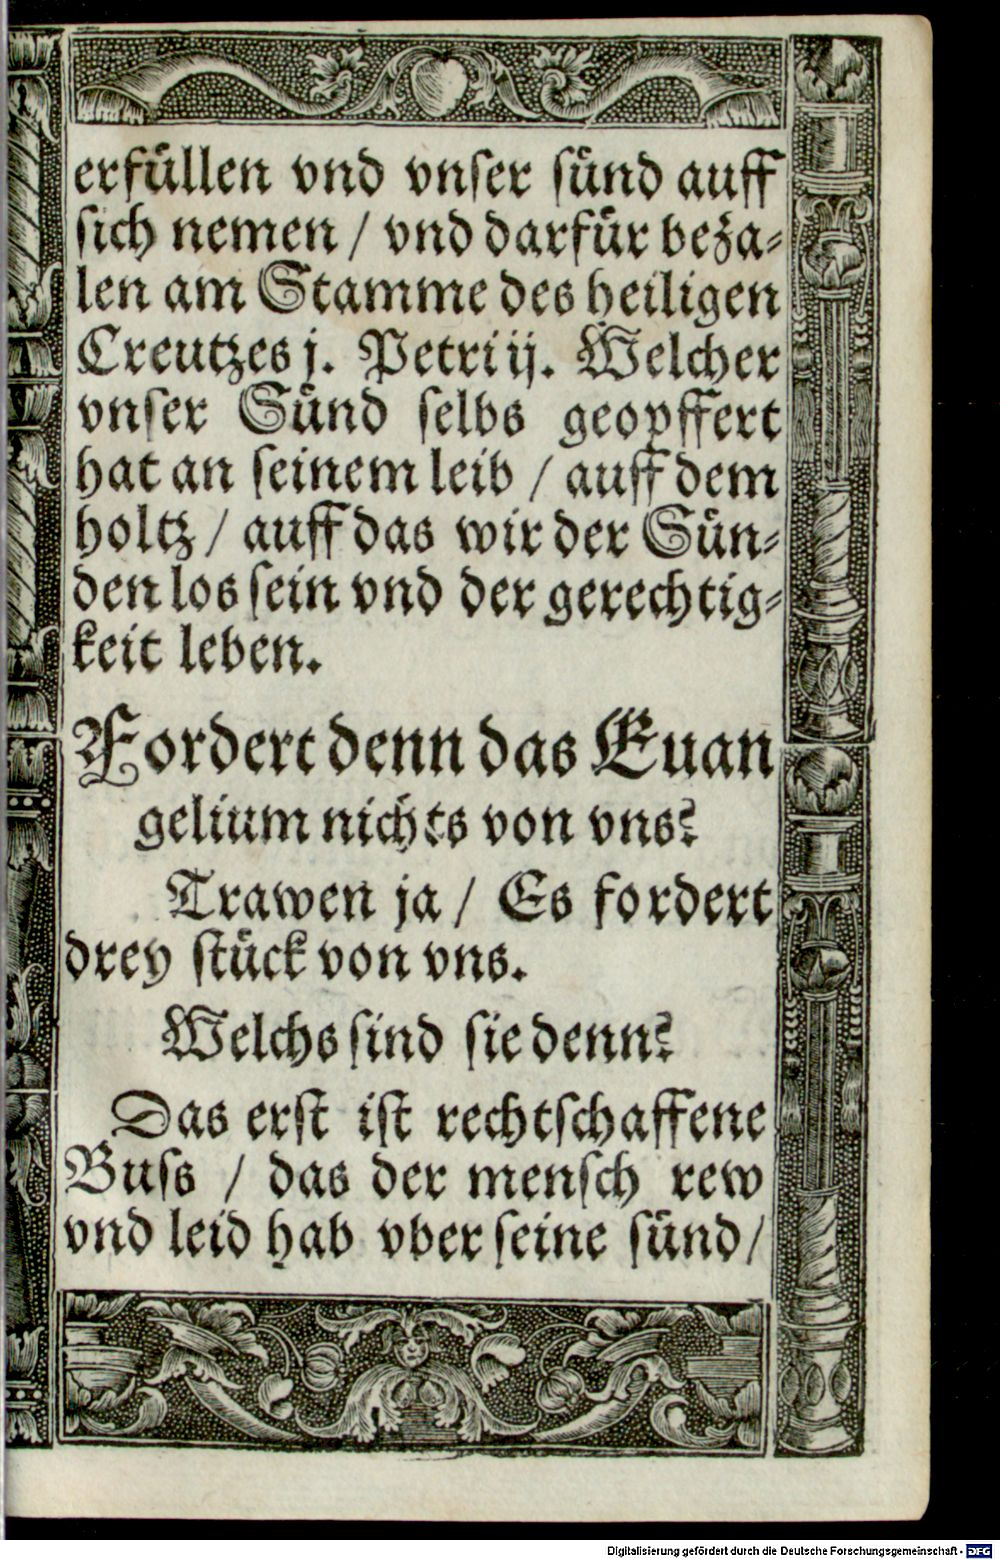 erfüllen vnd vnser sünd auff
sich nemen / vnd darfür beza-
len am Stamme des heiligen
Creutzes j. Petri ij. Welcher
vnser Sünd selbs geopffert
hat an seinem leib / auff dem
holtz / auff das wir der Sün-
den los sein vnd der gerechtig-
keit leben.
Fordert denn das Euan
gelium nichts von vns?
Trawen ja / Es fordert
drey stück von vns.
Welchs sind sie denn?
Das erst ist rechtschaffene
Buss / das der mensch rew
vnd leid hab vber seine sünd /
Digitalisierung gefördert durch die Deutsche Forschungsgemeinschaft - DFG